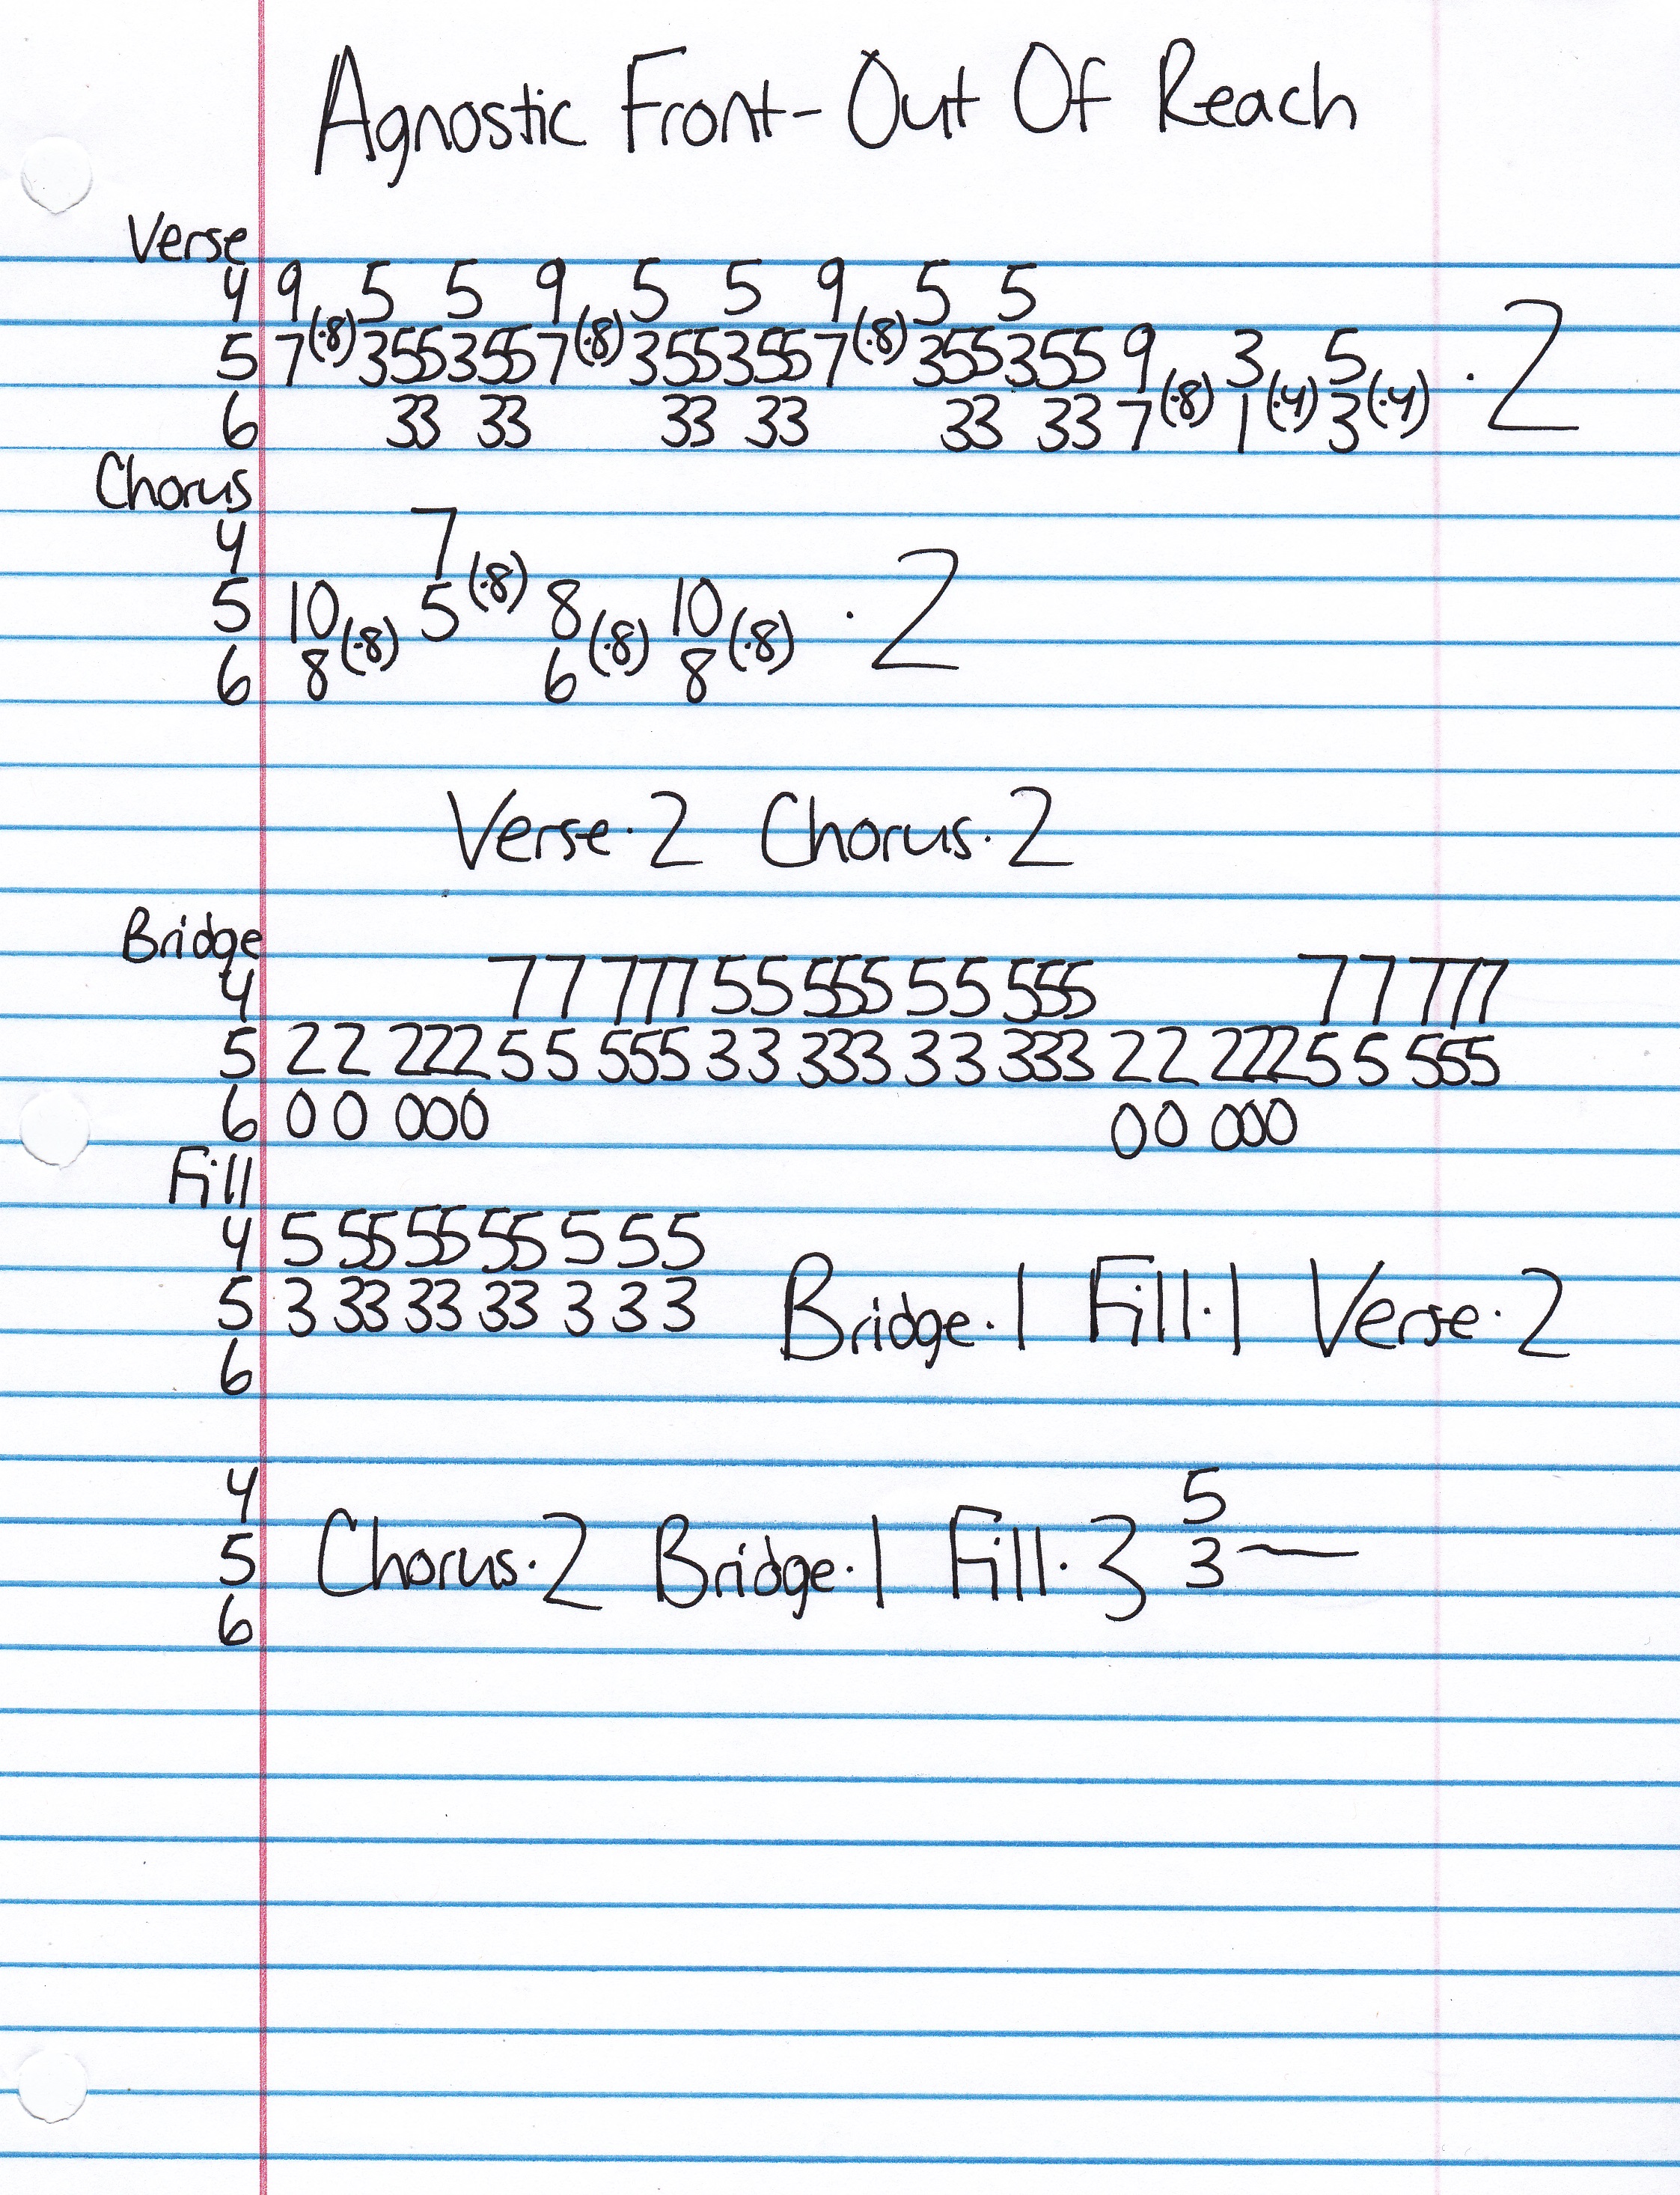 Agnostic Front- Out Of Reach
Verse
4 9 5 5 9 5 5 9 5 5
5 7(·8)3553557(·8)3553557(·8)355355 9 3 5 ·2
6 33 33 33 33 33 33 7(·8) 1(·4) 3(·4)
Chorus
4 7
5 10 5(·8) 8 10 ·2
6 8(·8) 6(·8) 8(·8)
Verse·2 Chorus·2
Bridge
4 77 777 55 555 55 555 77 777
5 22 222 55 555 33 333 33 333 22 222 55 555
6 00 000 00 000
Fill
4 5 55 55 55 5 5 5
5 3 33 33 33 3 3 3 Bridge·1 Fill·1 Verse·2
6
4 5
5 Chorus·2 Bridge·1 Fill·3 3—
6